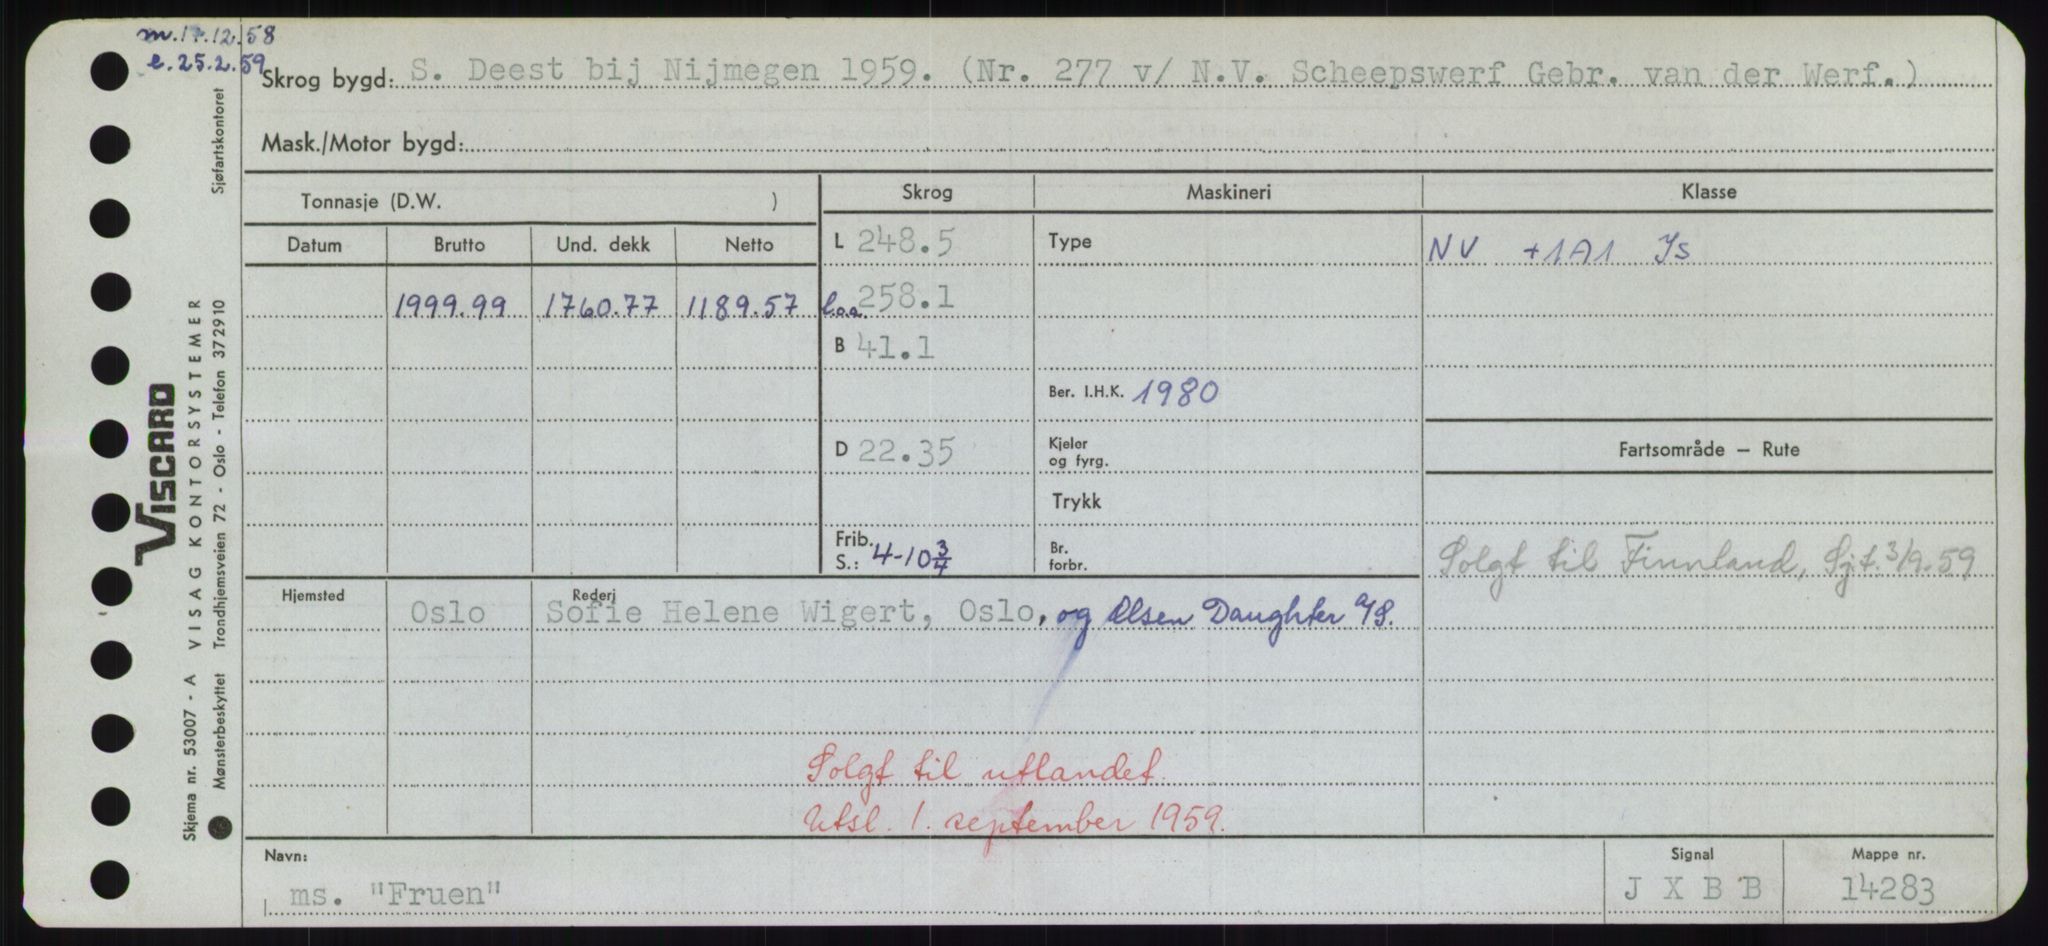 m.17.12.58
e.25.2.59
Skrog bygd: S. Deest bij Nijmegen 1959. (Nr. 277 v/ N.V. Scheepswerf Gebr. van der Werf.)
Mask./Motor bygd:
Tonnasje (D.W. )
Skrog
Maskineri
Klasse
Datum Brutto Und. dekk Netto
L 248.5
Type
NV +1A1 Is
1999.99 1760.77 1189.57
l.o.a. 258.1
B 41.1
Ber. I.H.K. 1980
D 22.35
Kjeler
og fyrg.
Fartsområde – Rute
Trykk
Frib.
S.: 4-10 3/4
Br.
forbr.
Solgt til Finnland, Sjt. 3/9-59
Hjemsted
Oslo
Rederi
Sofie Helene Wigert, Oslo, og Olsen Daughter A/S.
Solgt til utlandet.
Utsl. 1. september 1959.
Navn:
ms. "Fruen"
Signal
J X B B
Mappe nr.
14283
VISCARD
Skjema nr. 53007 - A VISAG KONTORSYSTEMER
Mønsterbeskyttet Trondhjemsveien 72 - Oslo - Telefon 372910 Sjøfartskontoret